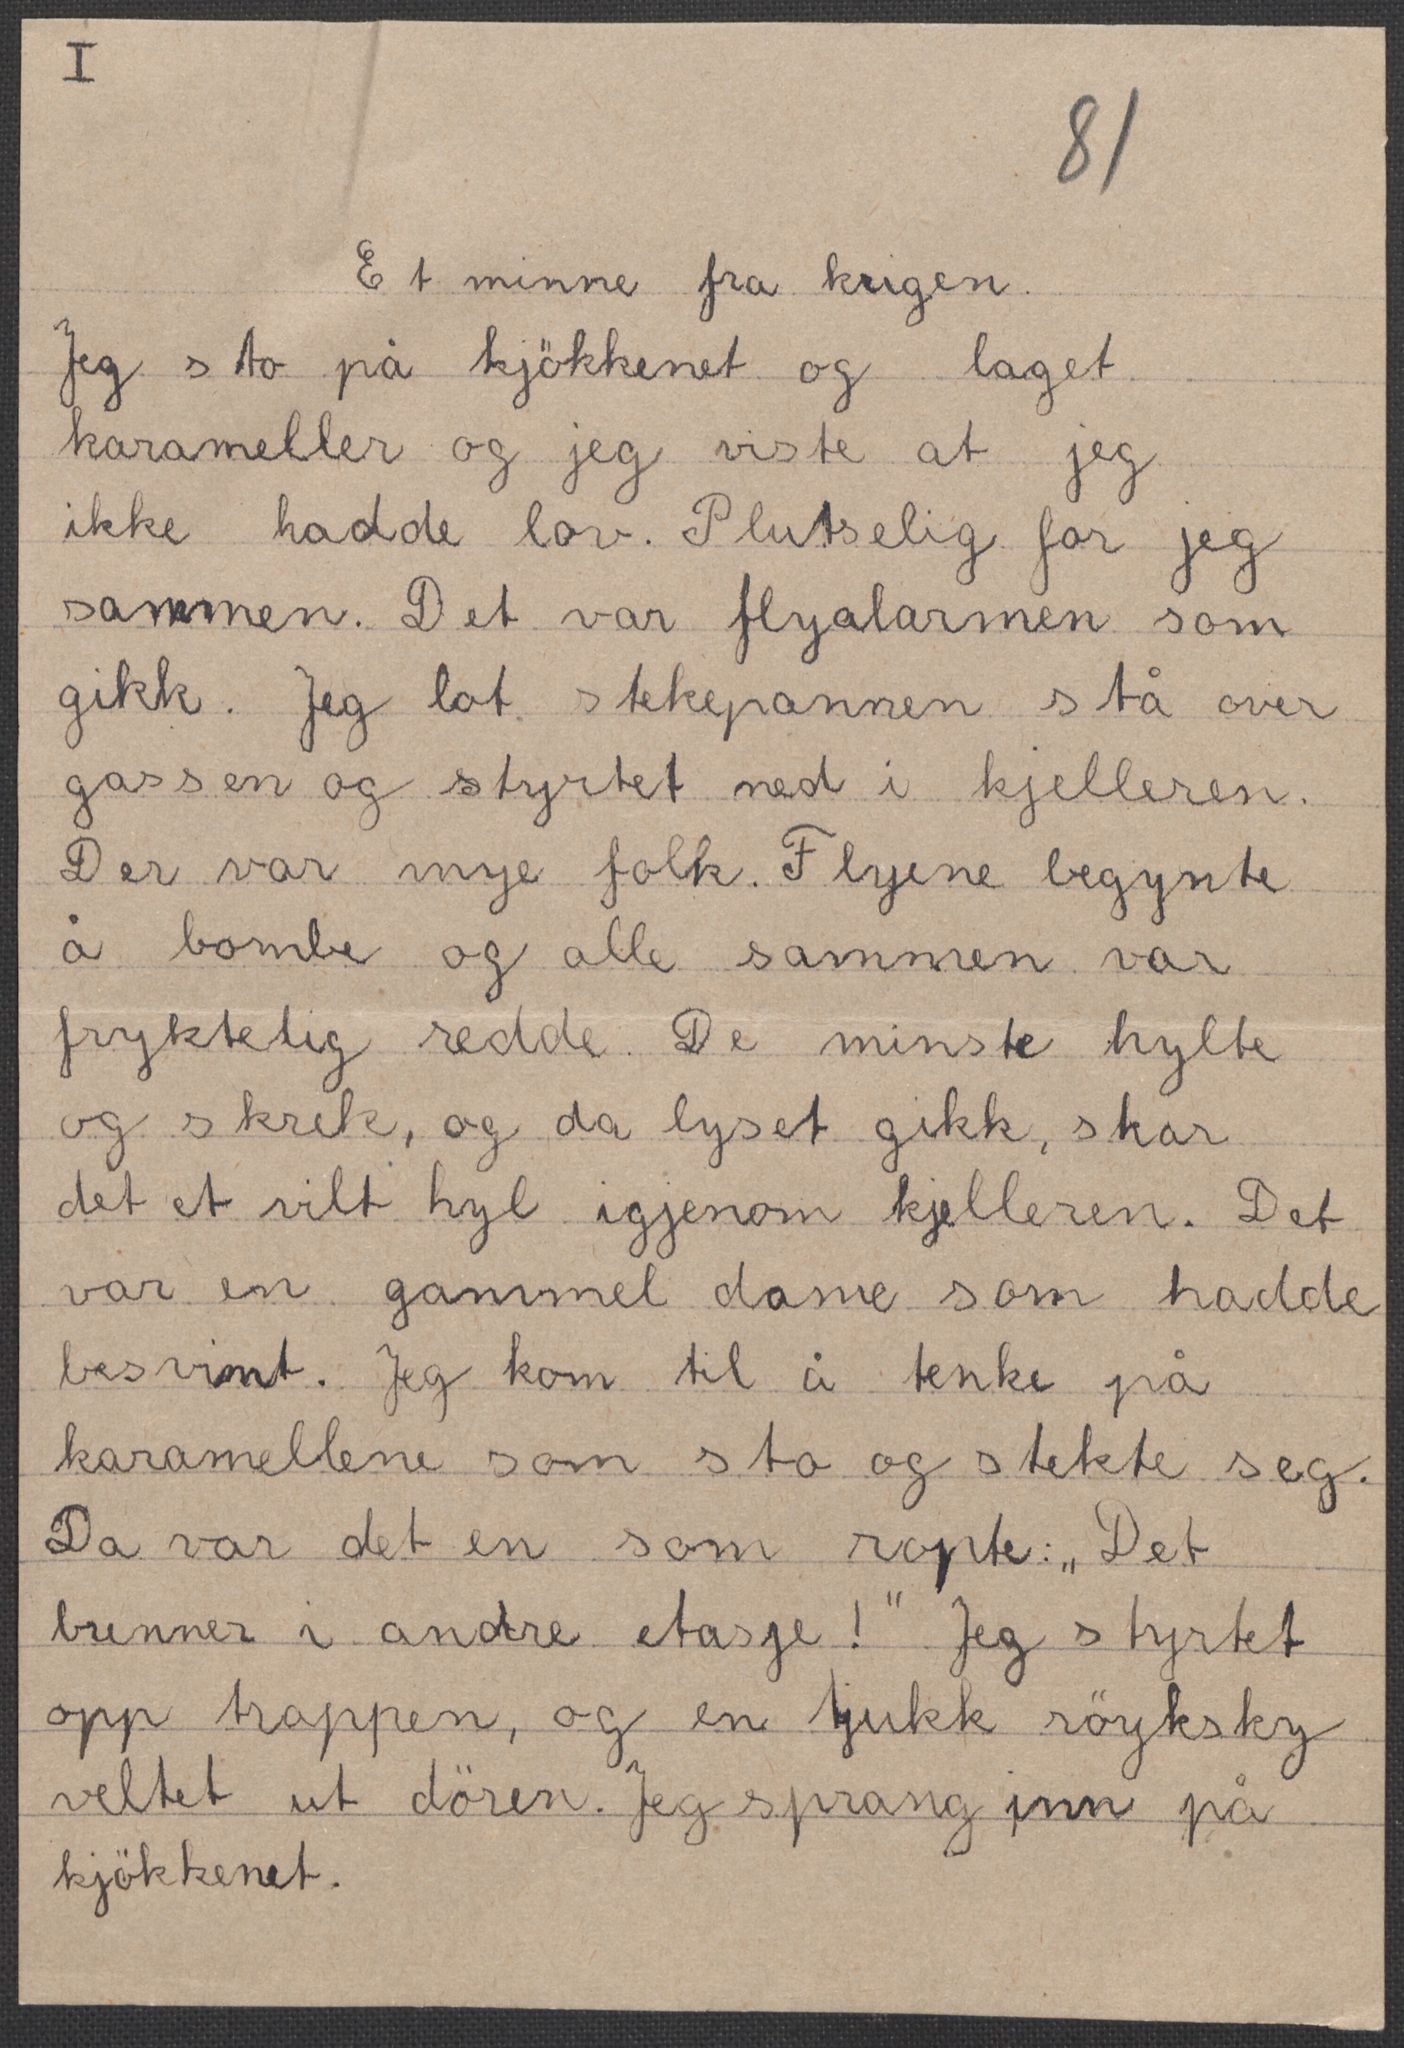 I
81
Et minne fra krigen.
Jeg sto på kjökkenet og laget
karameller og jeg viste at jeg
ikke hadde lov. Plutselig for jeg
sammen. Det var flyalarmen som
gikk. Jeg lot stekepannen stå over
gassen og styrtet ned i kjelleren.
Der var mye folk. Flyene begynte
å bombe og alle sammen var
fryktelig redde. De minste hylte
og skrek, og da lyset gikk, skar
det et vilt hyl igjenom kjelleren. Det
var en gammel dame som hadde
besvimt. Jeg kom til å tenke på
karamellene som sto og stekte seg.
Da var det en som ropte: „Det
brenner i andre etasje!" Jeg styrtet
opp trappen, og en tjukk röyksky
veltet ut dören. Jeg sprang inn på
kjökkenet.